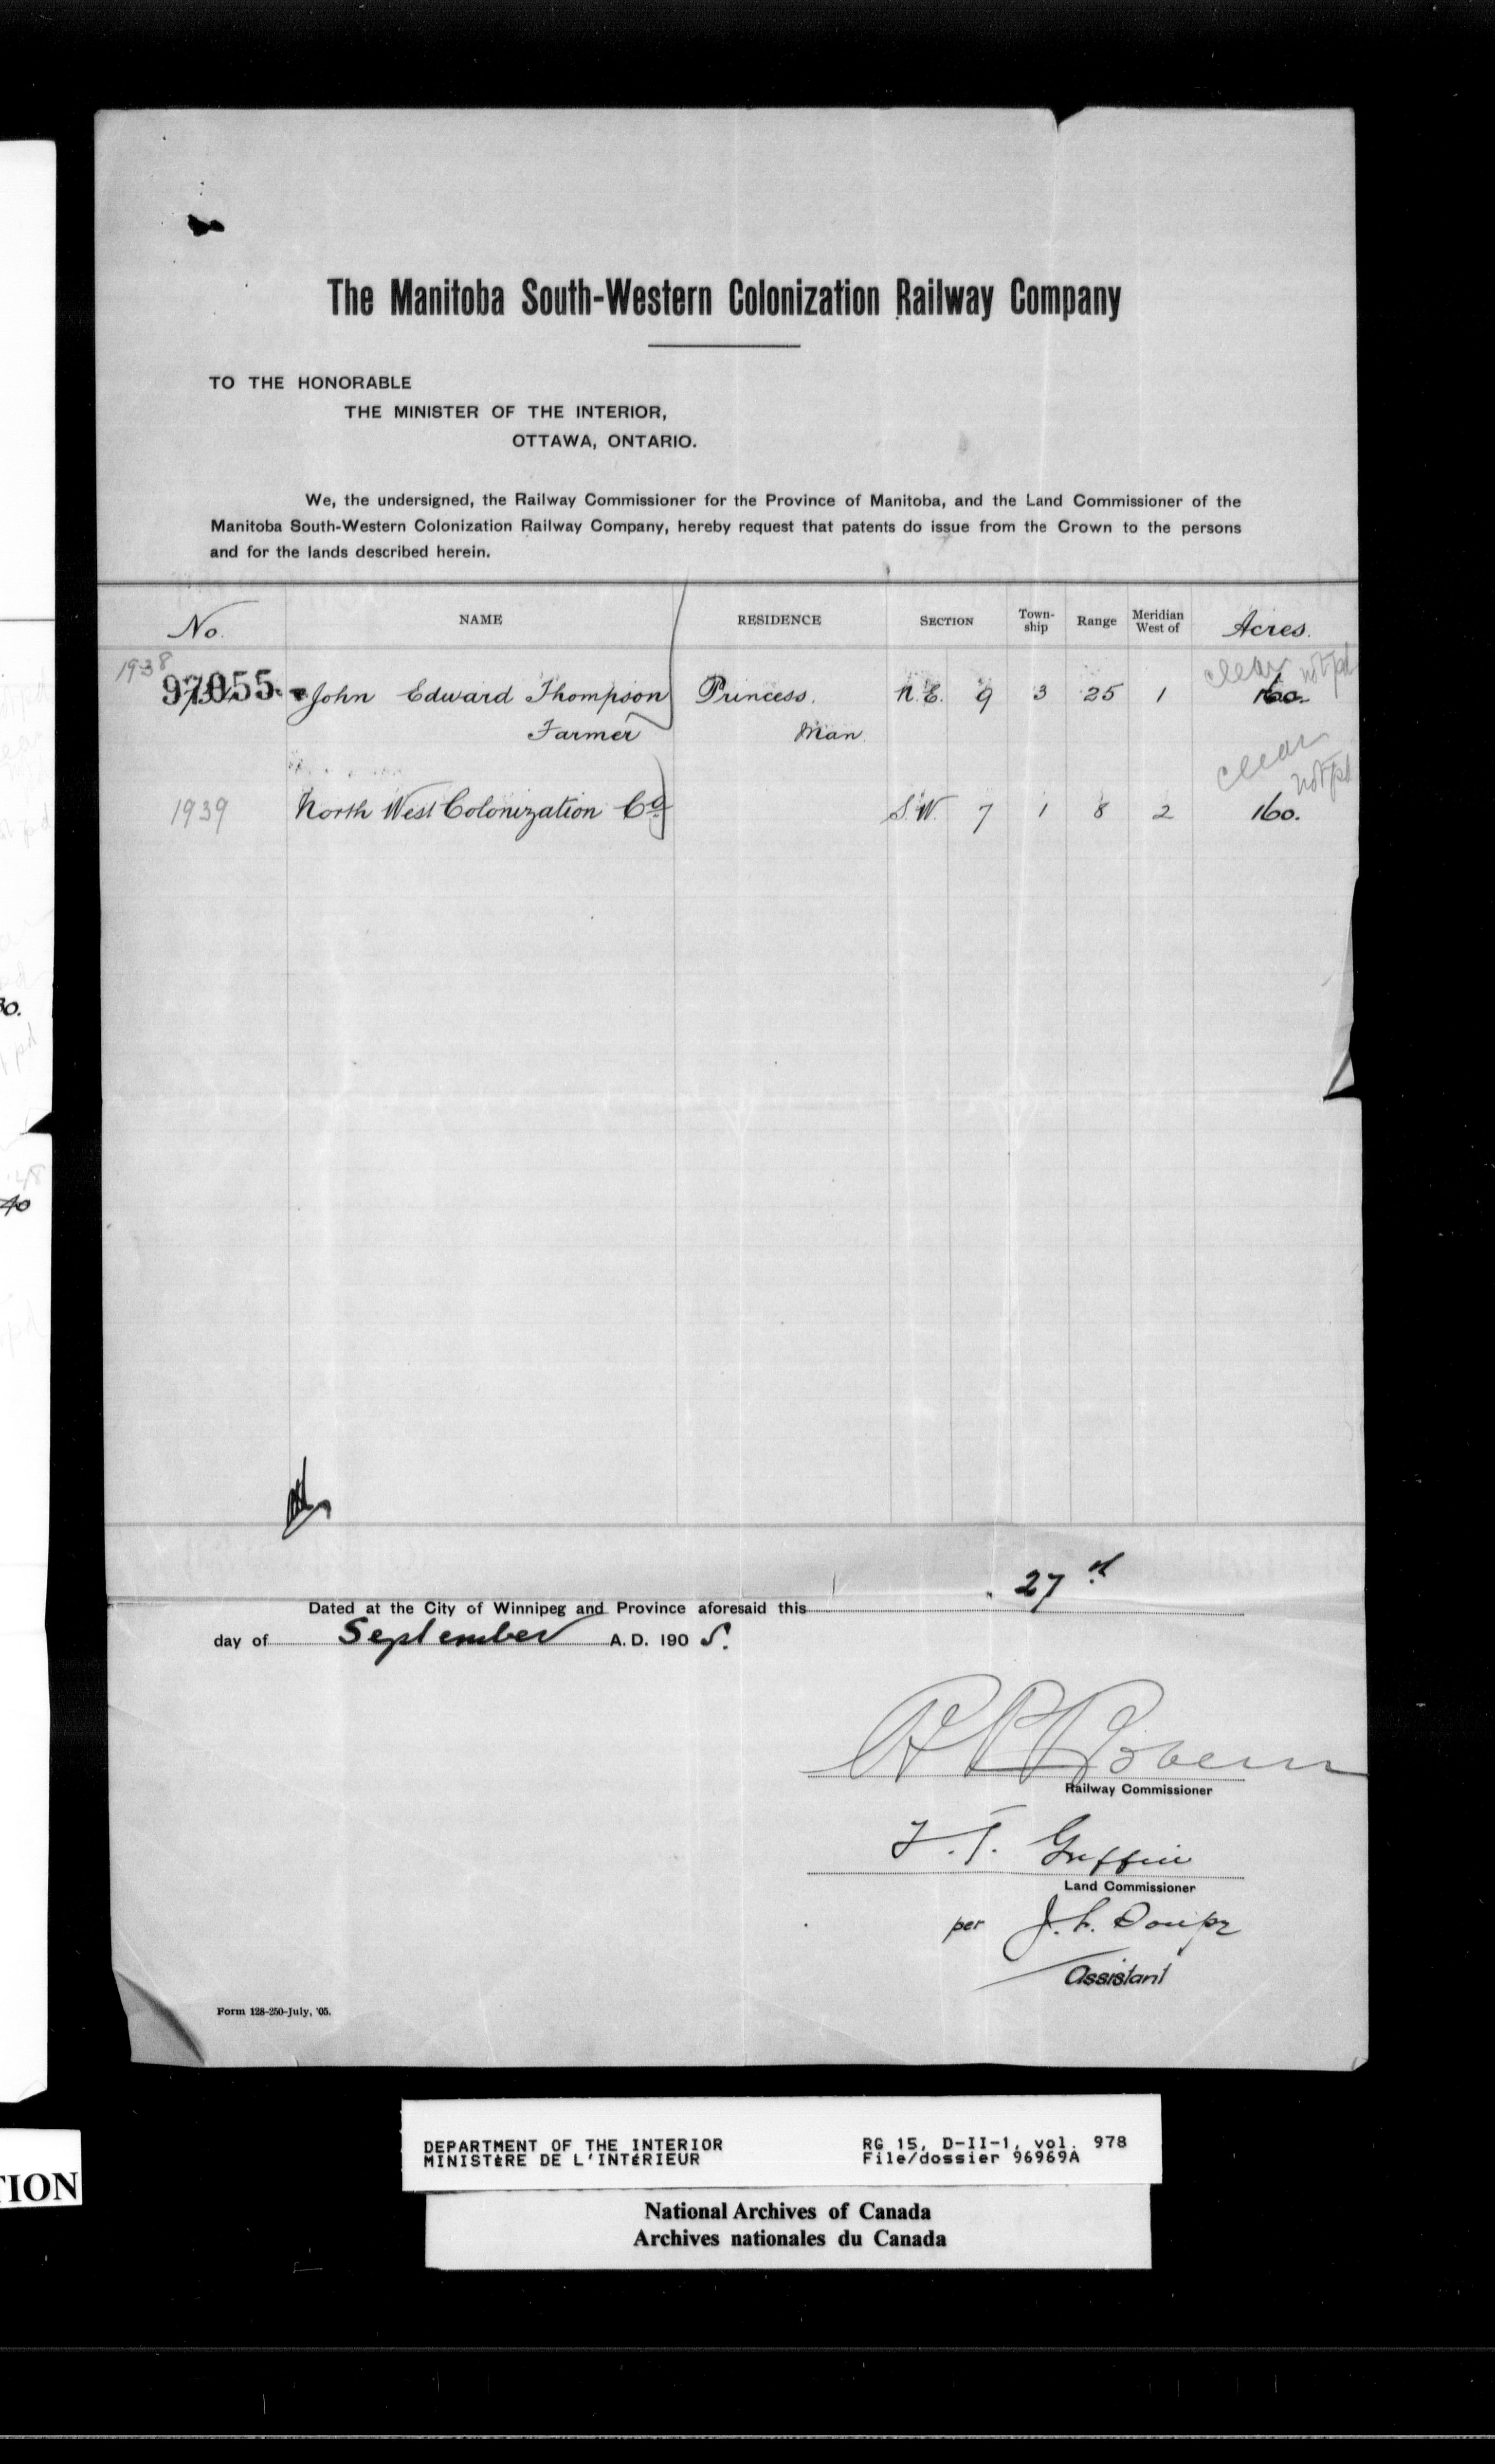 The Manitoba South-Western Colonization Railway Company
TO THE HONORABLE
THE MINISTER OF THE INTERIOR,
OTTAWA, ONTARIO.
We, the undersigned, the Railway Commissioner for the Province of Manitoba, and the Land Commissioner of the
Manitoba South-Western Colonization Railway Company, hereby request that patents do issue from the Crown to the persons
and for the lands described herein.
No. NAME RESIDENCE SECTION Town-ship Range Meridian West of Acres.
1938 clear not pd
97055. John Edward Thompson Princess. N.E. 9 3 25 1 160.
Farmer Man.
clear
not pd
1939 North West Colonization Co. S.W. 7 1 8 2 160.
Dated at the City of Winnipeg and Province aforesaid this 27
day of September A.D. 1905.
Railway Commissioner
F. T. Griffin
Land Commissioner
per J. L. Doupe
Assistant
Form 128-250-July, '05.
30.
40
TION
DEPARTMENT OF THE INTERIOR RG 15, D-II-1, vol. 978
MINISTÈRE DE L'INTÉRIEUR File/dossier 96969A
National Archives of Canada
Archives nationales du Canada